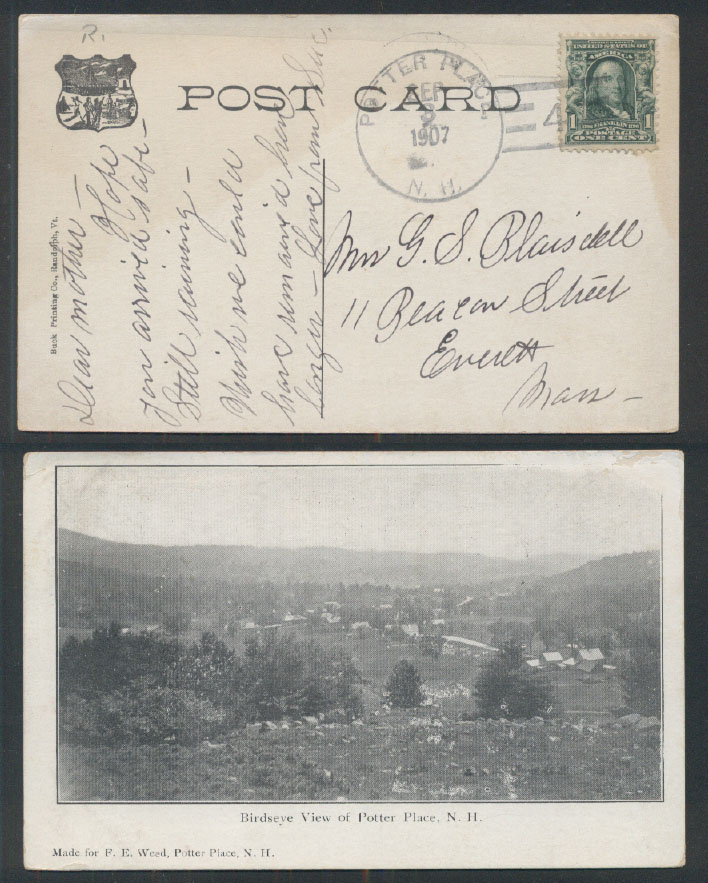 R.
POST CARD
POTTER PLACE
SEP
1907
N. H.
4
UNITED STATES OF
AMERICA
1 1
POSTAGE
ONE CENT
Buck Printing Co., Randolph, Vt.
Dear mother –
Hope
you arrived safe –
Still raining –
Wish we could
have remained here
longer – Love from Sue.
Mrs G. S. Blaisdell
11 Beacon Street
Everett
Mass –
Birdseye View of Potter Place, N. H.
Made for F. E. Weed, Potter Place, N. H.